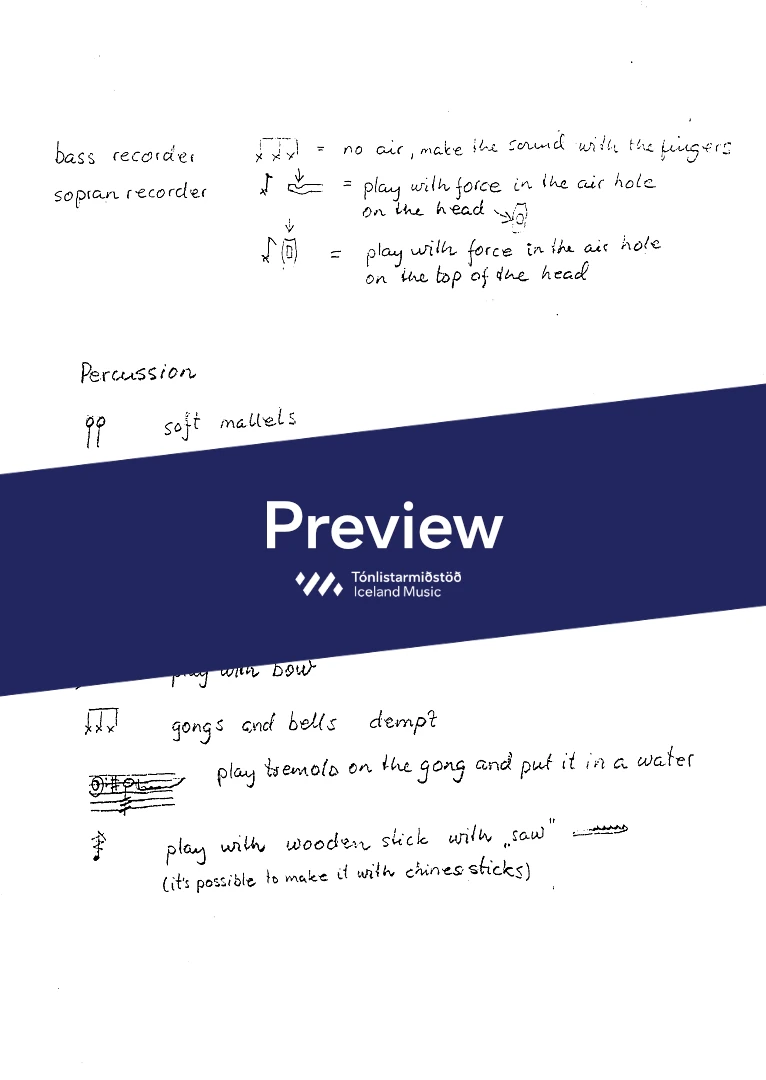 bass recorder = no air, make the sound with the fingers
sopran recorder = play with force in the air hole
on the head
= play with force in the air hole
on the top of the head
Percussion
soft mallets
Preview
Tónlistarmiðstöð
Iceland Music
play with bow
gongs and bells dempt
play tremolo on the gong and put it in a water
play with wooden stick with „saw"
(it's possible to make it with chines sticks)